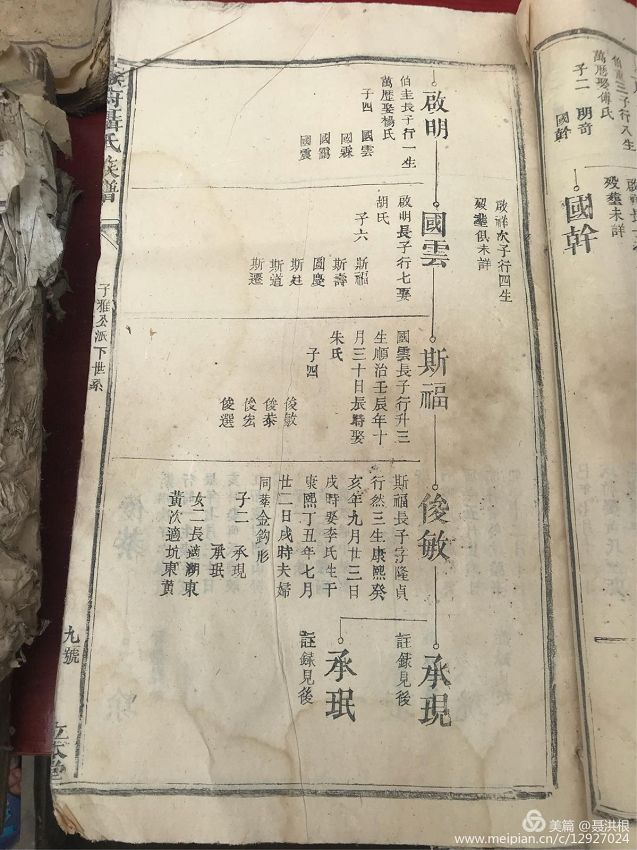 三子行八生
萬歷娶傅氏
子二 明奇
國幹
國幹
歿塟未詳
啟明
伯圭長子行一生
萬歷娶楊氏
子四 國雲
國霖
國鸞
國震
啟祥次子行四生
歿塟俱未詳
國雲
啟明長子行七娶
胡氏
子六 斯福
斯壽
國慶
斯廷
斯道
斯遷
斯福
國雲長子行升三
生順治壬辰年十
月三十日辰時娶
朱氏
子四
俊敏
俊泰
俊宏
俊選
俊敏
斯福長子字隆貞
行然三生康熙癸
亥年九月廿三日
戌時娶李氏生于
康熙丁丑年七月
廿二日戌時夫婦
同塟金鈎形
子二 承現
承珉
女二長適湖東
黃次適坑東黃
承現
註錄見後
承珉
註錄見後
聶氏族譜
子雅公派下世系
九號
美篇 @聂洪根
www.meipian.cn/c/12927024